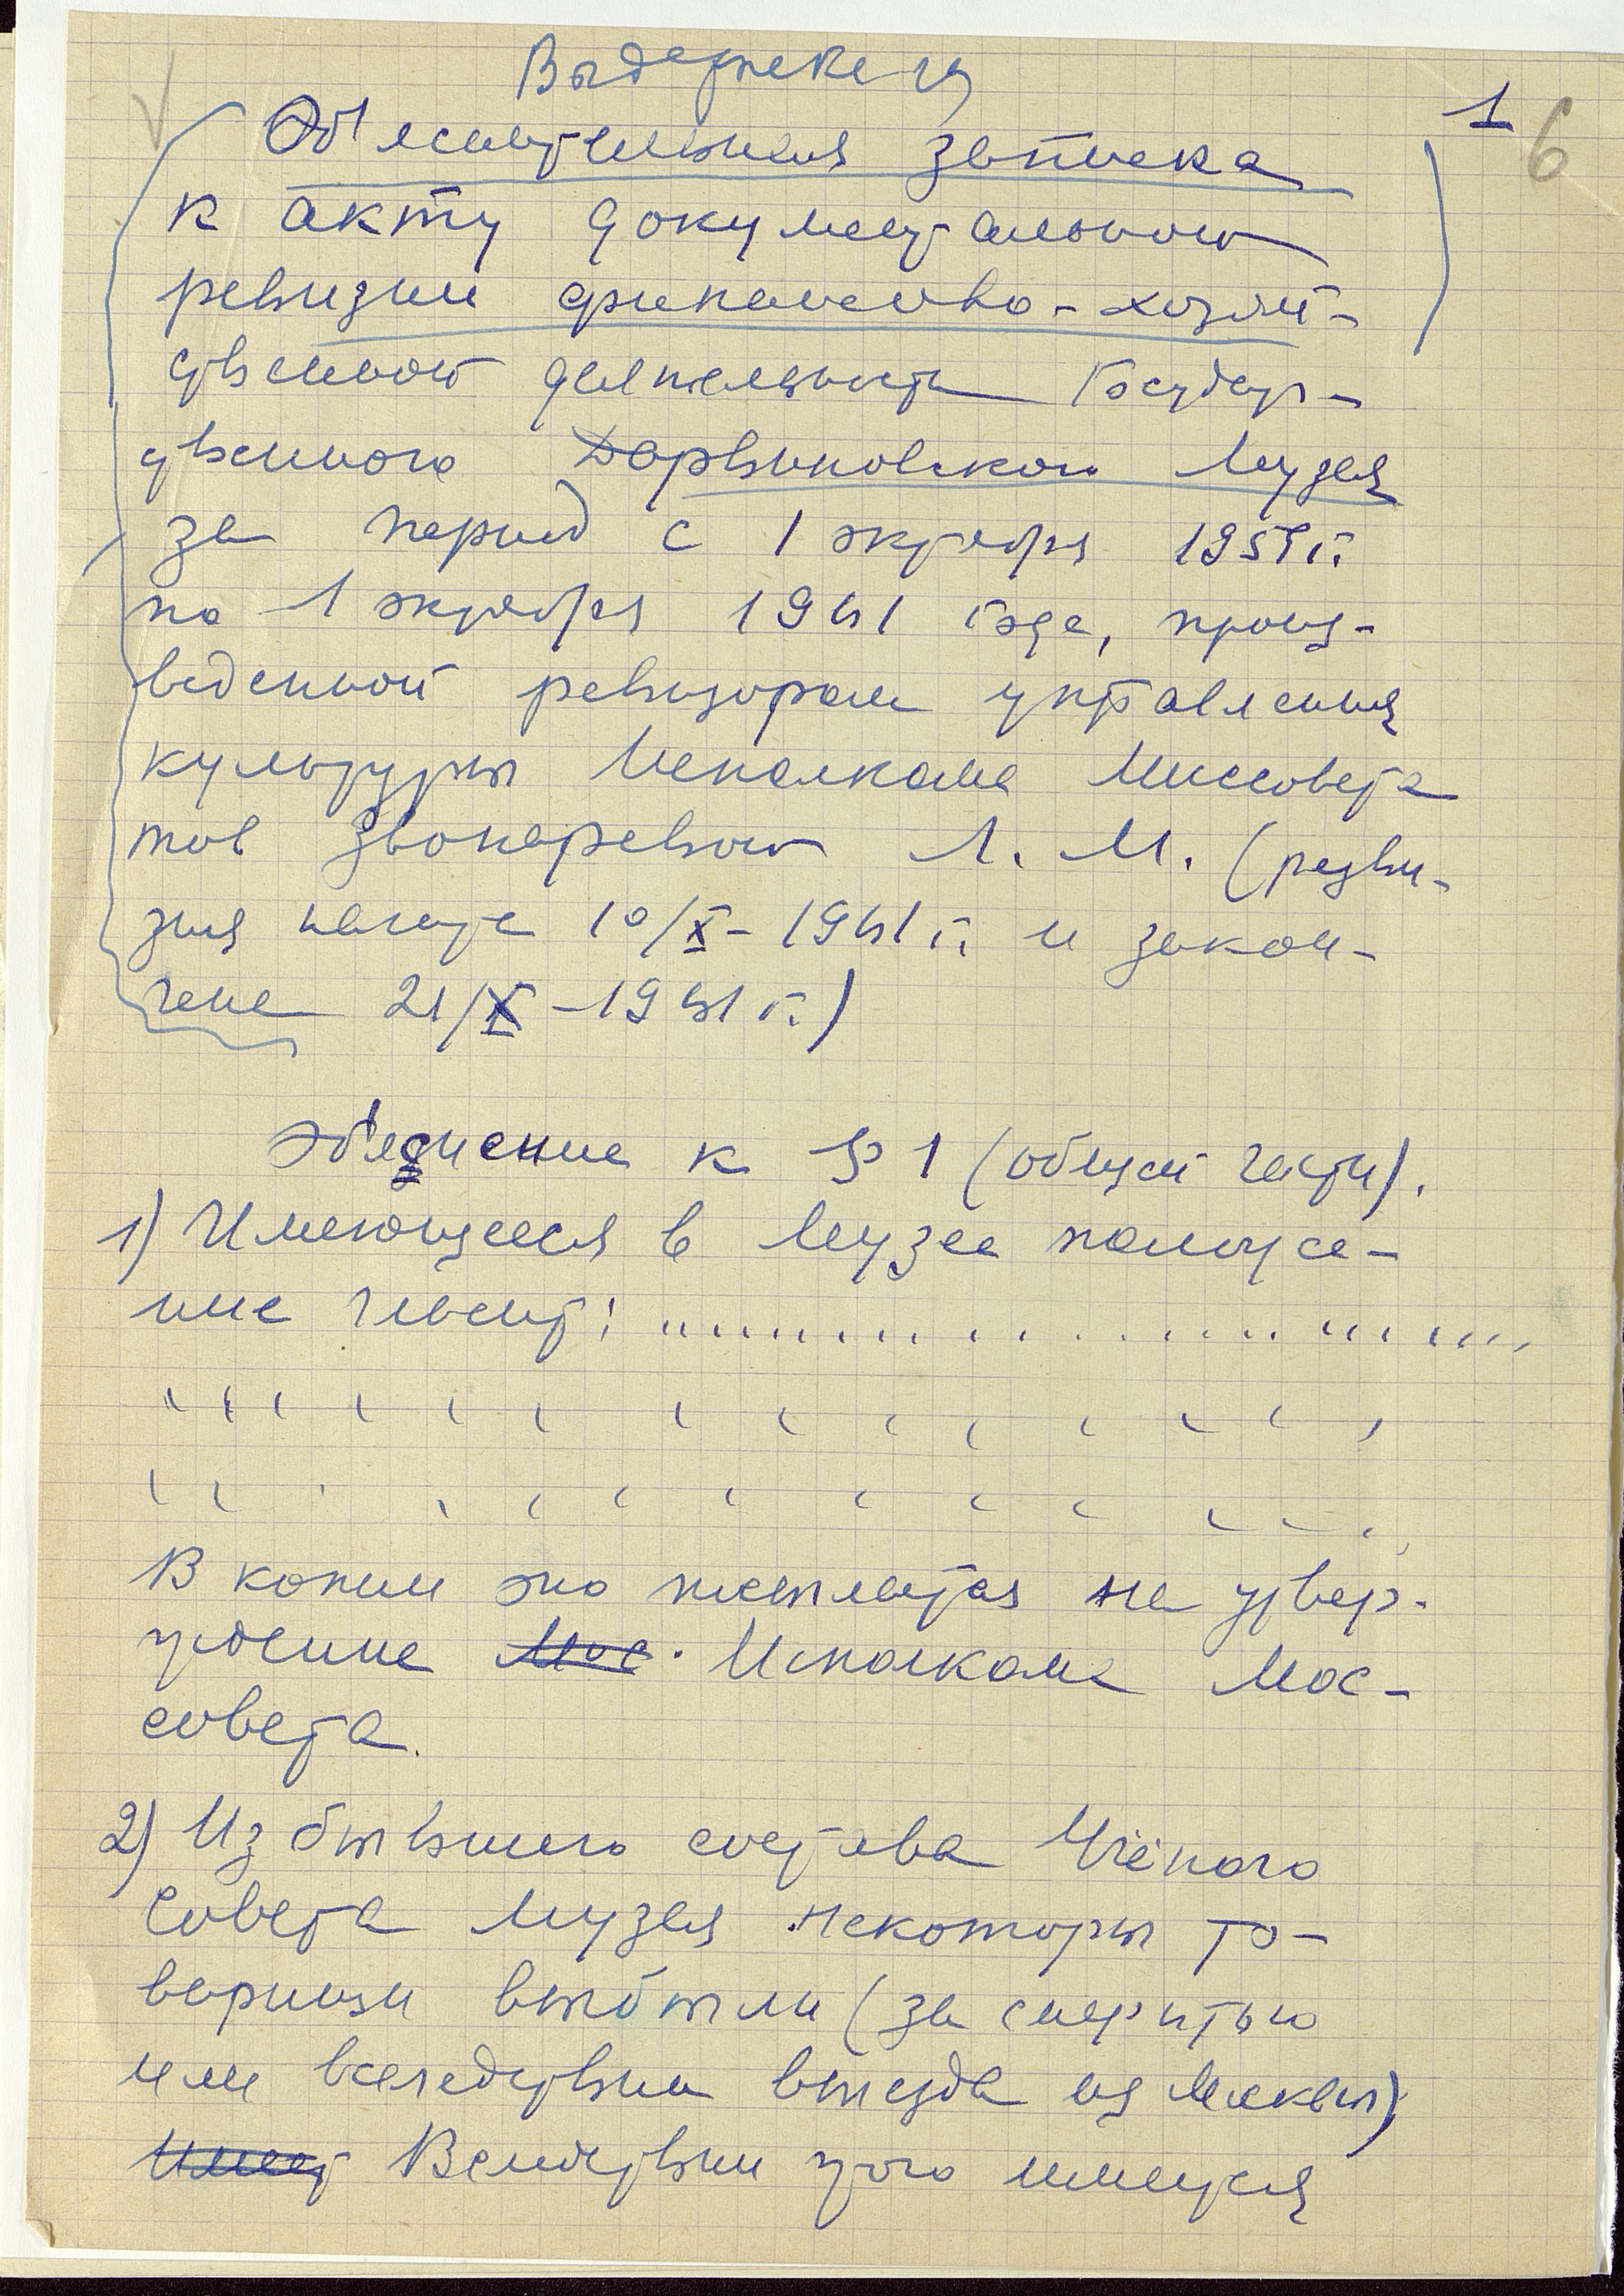 Выдержки из
1
6
Объяснительная записка
к акту документальной
ревизии финансово-хозяй-
ственной деятельности Государ-
ственного Дарвиновского Музея
за период с 1 октября 195 г.
по 1 октября 1961 года, произ-
веденной ревизором управления
культуры Исполкома Моссовета
тов Звонаревой Л. М. (реви-
зия начата 10/X-1961 г. и закон-
чена 21/X-1961 г.)
Объяснение к § 1 (общей части).
1) Имеющееся в Музее помуще-
ние
В копии это на утвер-
ждение Мос. Исполкома Мос-
совета.
2) Из бывшего состава Учёного
Совета Музея некоторы то-
варищи выбыли (за смертью
или вследствии выезда из Москвы)
Имеет Вследствии этого имеются